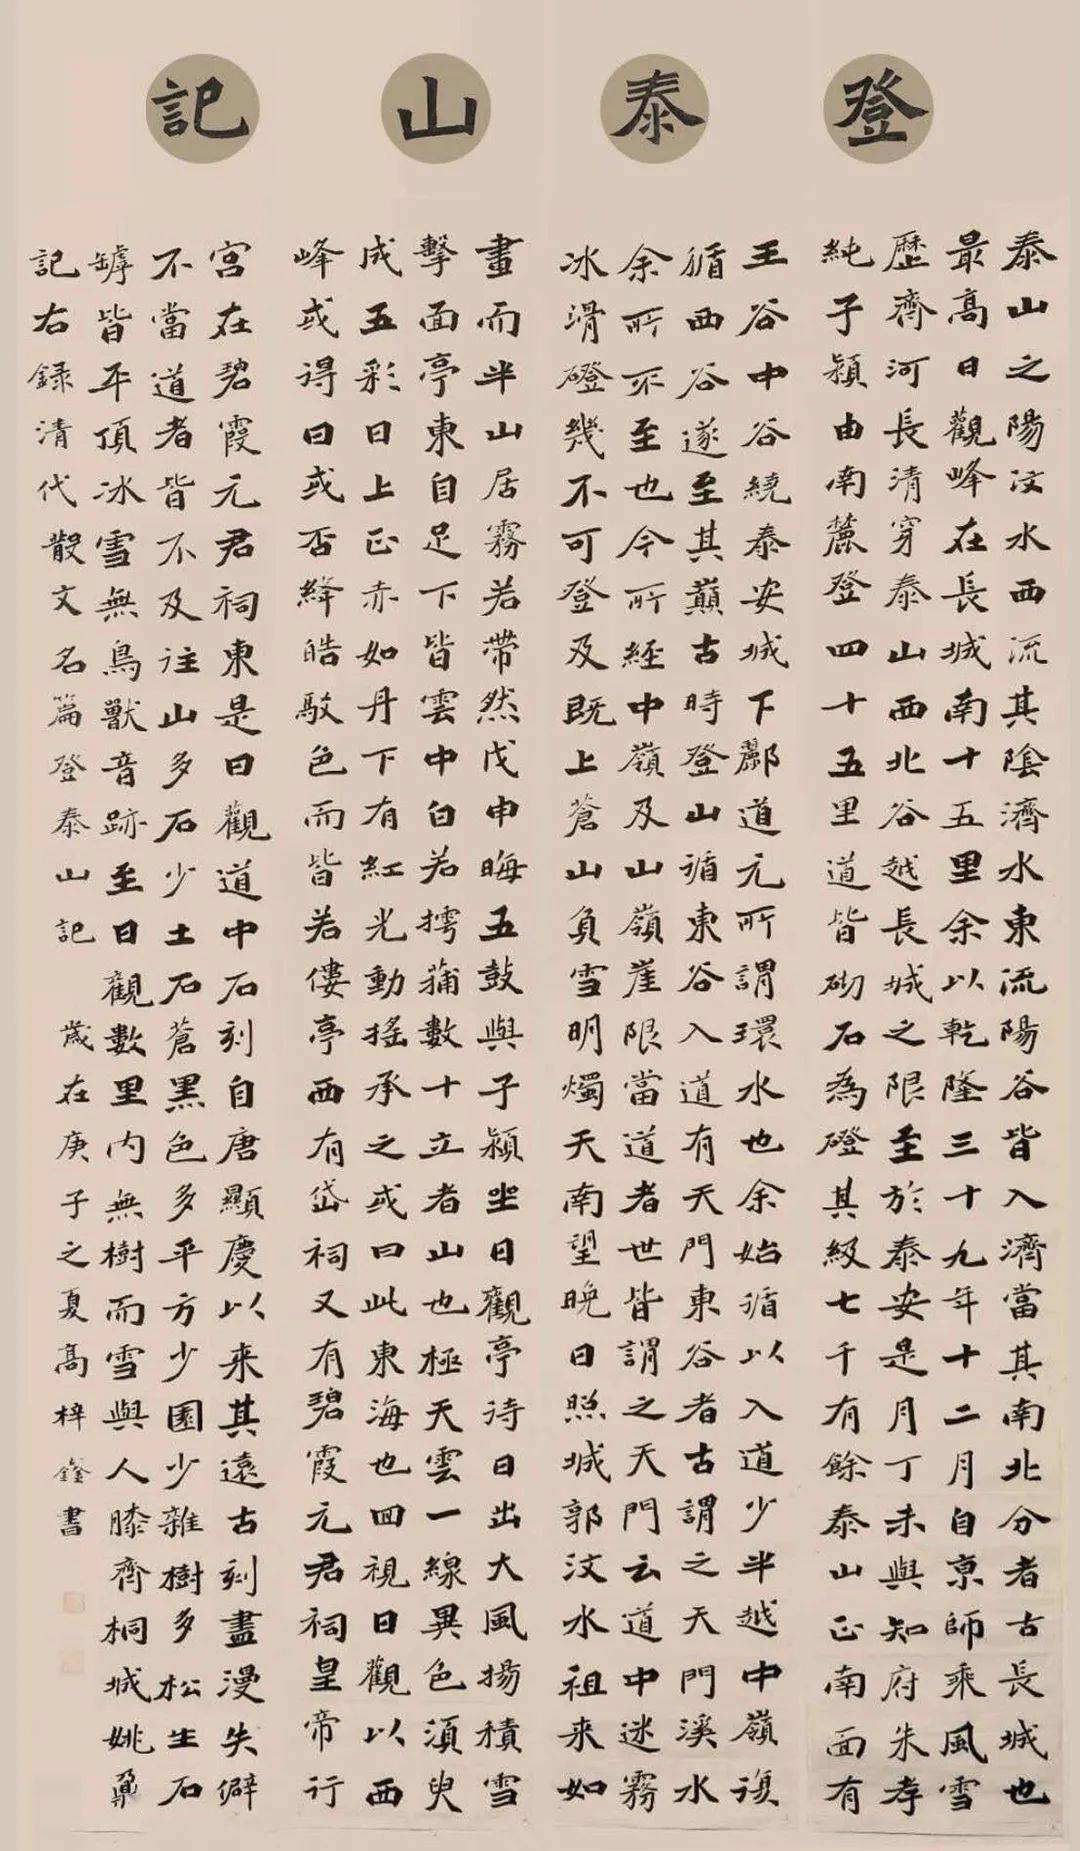 登泰山記
泰山之陽汶水西流其陰濟水東流陽谷皆入濟當其南北分者古長城也
最高日觀峰在長城南十五里余以乾隆三十九年十二月自京師乘風雪
歷齊河長清穿泰山西北谷越長城之限至於泰安是月丁未與知府朱孝
純子潁由南麓登四十五里道皆砌石為磴其級七千有餘泰山正南面有
王谷中谷繞泰安城下酈道元所謂環水也余始循以入道少半越中嶺復
循西谷遂至其巔古時登山循東谷入道有天門東谷者古謂之天門溪水
余所不至也今所經中嶺及山嶺崖限當道者世皆謂之天門云道中迷霧
冰滑磴幾不可登及既上蒼山負雪明燭天南望晚日照城郭汶水祖來如
畫而半山居霧若帶然戊申晦五鼓與子潁坐日觀亭待日出大風揚積雪
擊面亭東自足下皆雲中白若摴蒲數十立者山也極天雲一線異色須臾
成五彩日上正赤如丹下有紅光動搖承之或曰此東海也回視日觀以西
峰或得日或否絳皓駁色而皆若僂亭西有岱祠又有碧霞元君祠皇帝行
宮在碧霞元君祠東是日觀道中石刻自唐顯慶以來其遠古刻盡漫失僻
不當道者皆不及往山多石少土石蒼黑色多平方少圜少雜樹多松生石
罅皆平頂冰雪無鳥獸音跡至日觀數里內無樹而雪與人膝齊桐城姚鼐
記右錄清代散文名篇登泰山記 歲在庚子之夏高梓書